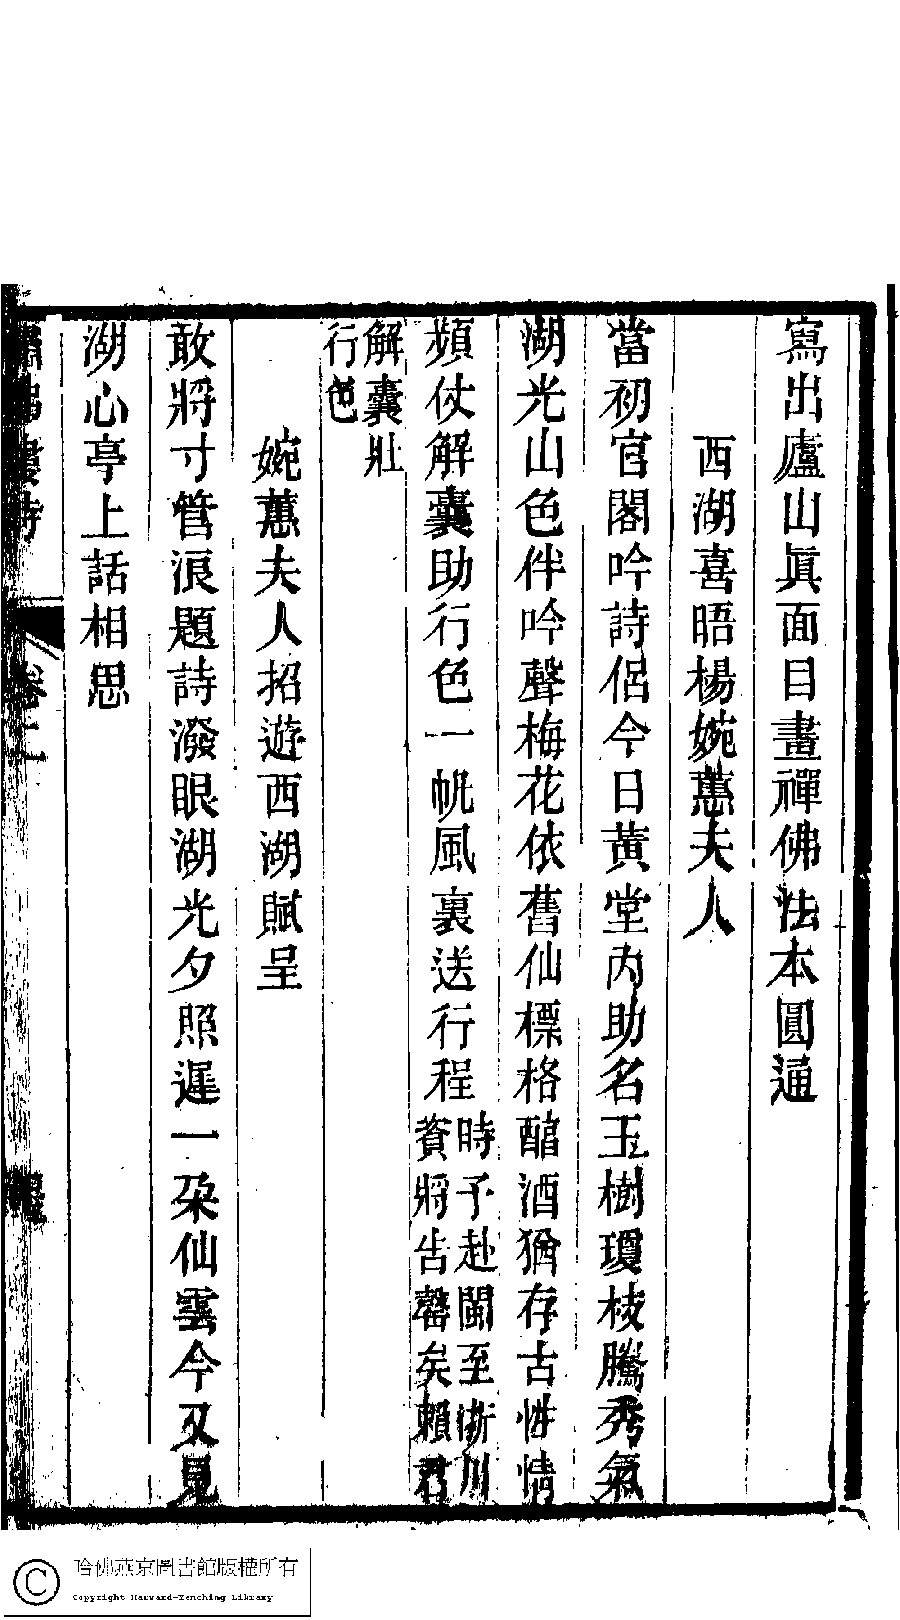 寫出廬山眞面目畫禪佛法本圓通
西湖喜晤楊婉蕙夫人
當初官閣吟詩侶今日黃堂内助名玉樹瓊枝騰秀氣
湖光山色伴吟聲梅花依舊仙標格醕酒猶存古性情
頻仗解囊助行色一帆風裏送行程時予赴閩至浙川
資將告罄矣賴君
解囊壯
行色
婉蕙夫人招遊西湖賦呈
敢將寸管浪題詩潑眼湖光夕照遲一朶仙雲今又見
湖心亭上話相思
樓詩
卷二
哈佛燕京圖書館版權所有
Copyright Harvard-Yenching Library